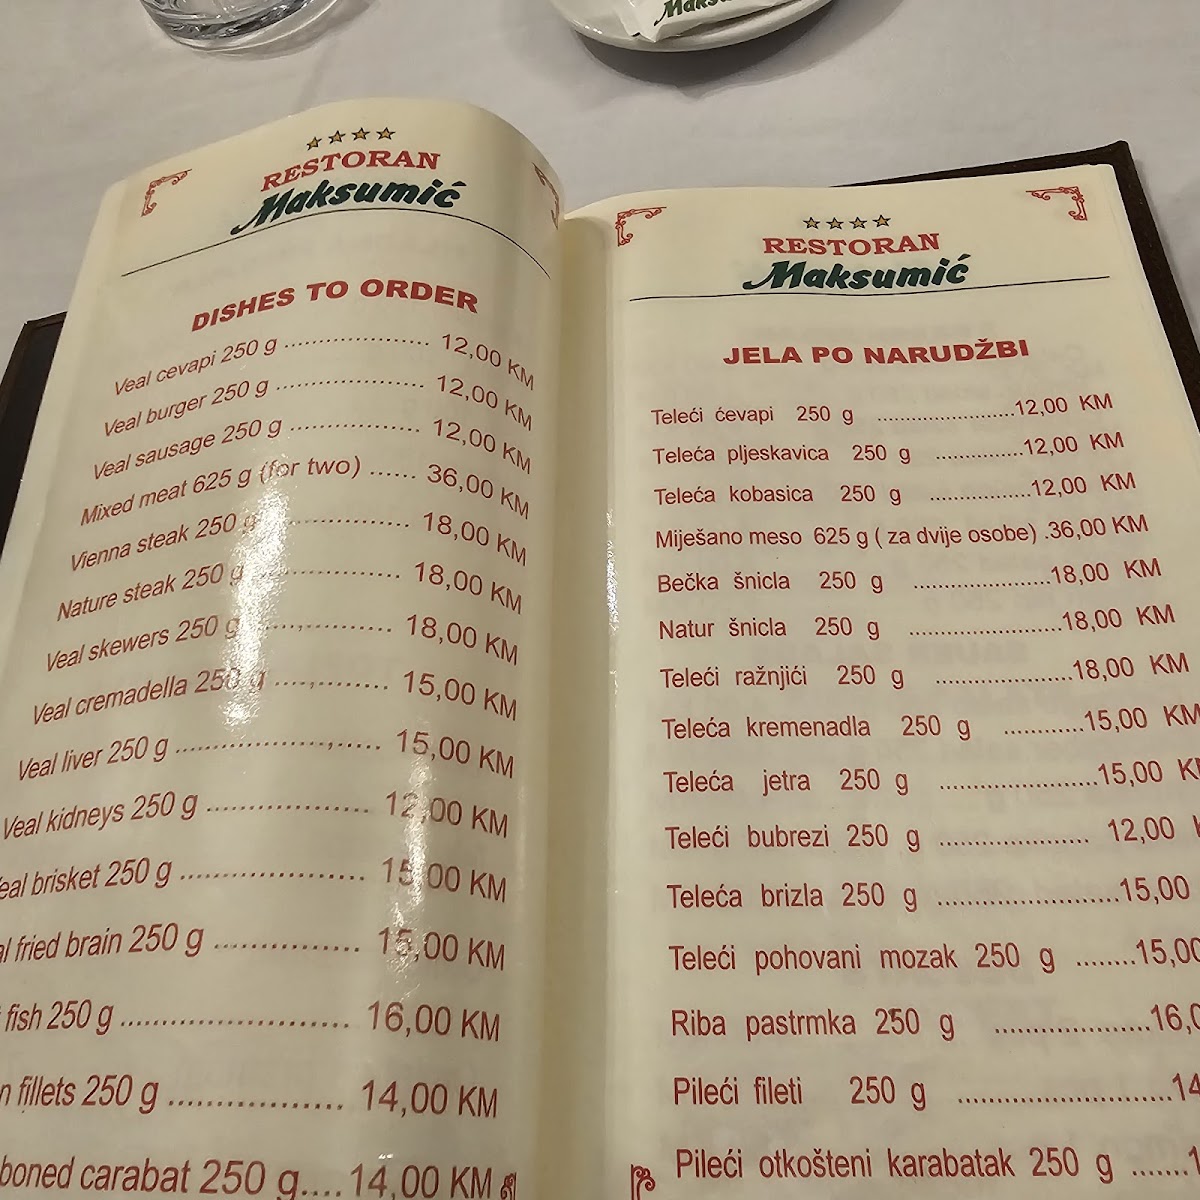 Maksu
RESTORAN
Maksumić
DISHES TO ORDER
Veal cevapi 250 g ..................... 12,00 KM
Veal burger 250 g ...................... 12,00 KM
Veal sausage 250 g ................... 12,00 KM
Mixed meat 625 g (for two) ...... 36,00 KM
Vienna steak 250 g ................... 18,00 KM
Nature steak 250 g ................... 18,00 KM
Veal skewers 250 g ................... 18,00 KM
Veal cremadella 250 g ............... 15,00 KM
Veal liver 250 g ......................... 15,00 KM
Veal kidneys 250 g ................... 12,00 KM
eal brisket 250 g ..................... 15,00 KM
al fried brain 250 g ................ 15,00 KM
fish 250 g ............................ 16,00 KM
n fillets 250 g ................... 14,00 KM
boned carabat 250 g.... 14,00 KM
RESTORAN
Maksumić
JELA PO NARUDŽBI
Teleći ćevapi 250 g ......................12,00 KM
Teleća pljeskavica 250 g ...............12,00 KM
Teleća kobasica 250 g .................12,00 KM
Miješano meso 625 g ( za dvije osobe) .36,00 KM
Bečka šnicla 250 g ......................18,00 KM
Natur šnicla 250 g ........................18,00 KM
Teleći ražnjići 250 g .....................18,00 KM
Teleća kremenadla 250 g ............15,00 KM
Teleća jetra 250 g .......................15,00 K
Teleći bubrezi 250 g ..................... 12,00
Teleća brizla 250 g ........................15,00
Teleći pohovani mozak 250 g ........15,00
Riba pastrmka 250 g ....................16,0
Pileći fileti 250 g ..........................14
Pileći otkošteni karabatak 250 g .......1